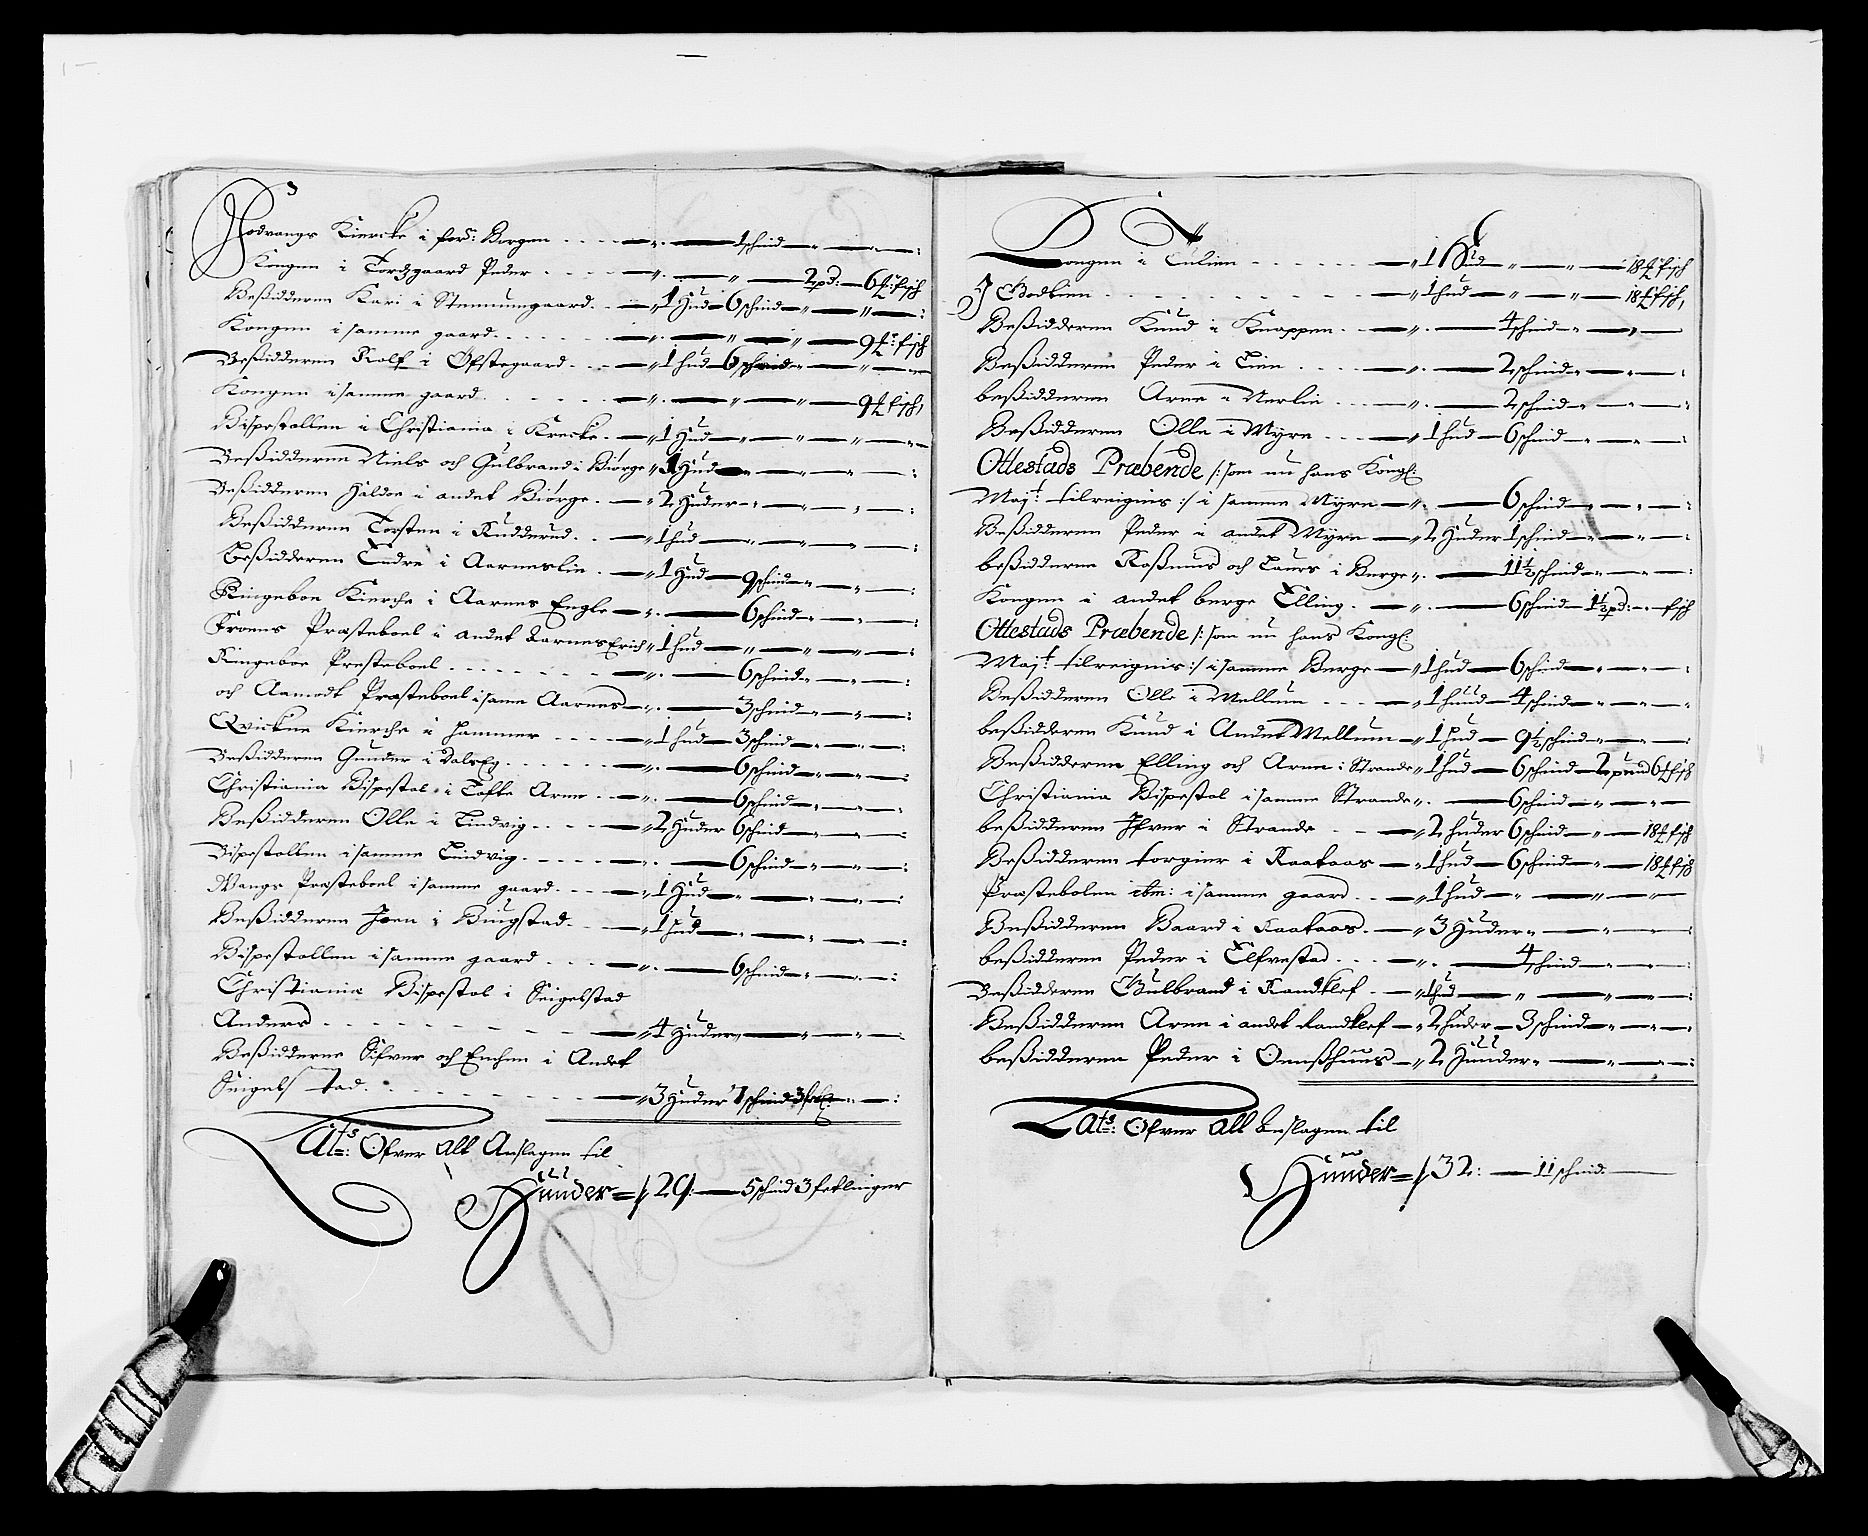 Hodvangs Kiercke i ford: Bergen - - - 1 schind
Kongen i Tordzgaard Peder - - - 2 pd: 6 ℔: fisch
Beßidderen Kari i Stemmumgaard - 1 Hud 6 schind
Kongen i samme gaard - - - 9 ℔: fisch
Beßidderen Rolf i Øfstegaard - - 1 hud 6 schind
Kongen i samme gaard - - - 9 ℔ fisch,
Bispestollen i Christiania i Krecke - 1 Hud
Beßidderne Niels och Gulbrand i Biørge 1 Hud
Beßidderen Haldor i andet Biørge - 2 Huder
Beßidderen Torsten i Rudderud - - 1 hud
Beßidderen Endre i Aarneslie - 1 Hud 9 schind
Ringeboe Kierche i Aarnes Engle - 6 schind
Froens Præsteboel i andet Aarnes Erich 1 hud
Ringeboe Presteboel - - - 6 schind
och Aamodt Præsteboel i same Aarnes - 3 schind
Qvickne Kierche i Hammer - - - 1 hud 3 schind
Beßidderen Gunder i Dalseg - - - 6 schind
Christiania Bispestol i Tofte Arne - - 6 schind
Beßidderen Olle i Lindvig - - - 2 Huder 6 schind
Bispestollen i samme Lindvig - - - 6 schind
Wangs Præsteboel i samme gaard - - 1 Hud
Beßidderen Joen i Bungstad - - 1 hud
Bispestollen i samme gaard - - - 6 schind
Christiania Bispestol i Seigelstad
Anders - - - 4 Huder
Beßidderne Sifver och Enchen i Andet
Seigelstad - - - 3 Huder 7 schind 3
Lats: Ofver Alt Anslagen til
Huuder 29 - 5 schind 3 fetlinger
Kongen i Lulien - - - 1 Hud 18 ℔ fisch
J Godlien - - - 1 hud 18 ℔ fisch,
Beßidderen Knud i Knappen - - 4 schind
Beßidderen Peder i Lien - - - 2 schind
beßidderen Arne i Nerlie - - - 2 schind
Beßidderen Olle i Myre - - - 1 hud 6 schind
Ottestads Præbende /: som nu hans Kongl:
Majt: tilreignis :/ i samme Myre - 6 schind
Beßidderen Peder i andet Myre - 2 Huder 1 schind
beßidderne Raßmus och Laurs i Berge - 11½ schind
Kongen i andet berge Elling - 6 schind 1½ pd: fisch
Ottestads Præbende /: som nu hans Kongl:
Majt: tilreignis :/ i samme Berge - 1 hud 6 schind
Beßidderen Olle i Mellum - - - 1 huud 4 schind
beßidderen Knud i Andet Mellum - 1 Hud 9½ schind
Beßidderne Elling och Arne i Strande 1 hud 6 schind 2 pund 6 ℔ fisch
Christiania Bispestol i samme Strande - 6 schind
beßidderen Ifver i Strande - - 2 huder 6 schind 18 ℔ fisch
Beßidderen torgier i Raataas - 1 hud 6 schind 18 ℔ fisch
Præstebolen ibm: i samme gaard - 1 hud
Beßidderen Baard i Raataas - 3 Huder
beßidderen Peder i Elfvestad - - - 4 schind
Beßidderen Gulbrand i Randklef - 1 hud
Beßidderen Arne i andet Randklef - 2 huder 3 schind
beßidderen Peder i Oenßhuus - 2 Huuder
Lats: Ofver Alt beslagen til
Huuder 32: - 11 schind: